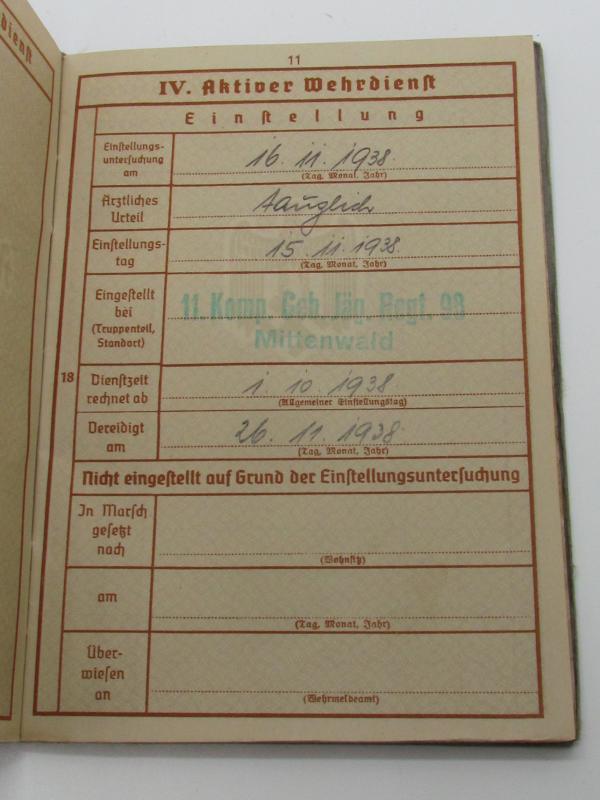 dienst
11
IV. Aktiver Wehrdienst
Einstellung
Einstellungs-
untersuchung
am
16. 11. 1938.
(Tag, Monat, Jahr)
Ärztliches
Urteil
tauglich
Einstellungs-
tag
15. 11. 1938.
(Tag, Monat, Jahr)
Eingestellt
bei
(Truppenteil,
Standort)
11. Komp. Geb. Jäg. Regt. 98
Mittenwald
18
Dienstzeit
rechnet ab
1. 10. 1938.
(Allgemeiner Einstellungstag)
Vereidigt
am
26. 11. 1938.
(Tag, Monat, Jahr)
Nicht eingestellt auf Grund der Einstellungsuntersuchung
In Marsch
gesetzt
nach
(Wohnsitz)
am
(Tag, Monat, Jahr)
Über-
wiesen
an
(Wehrmeldeamt)